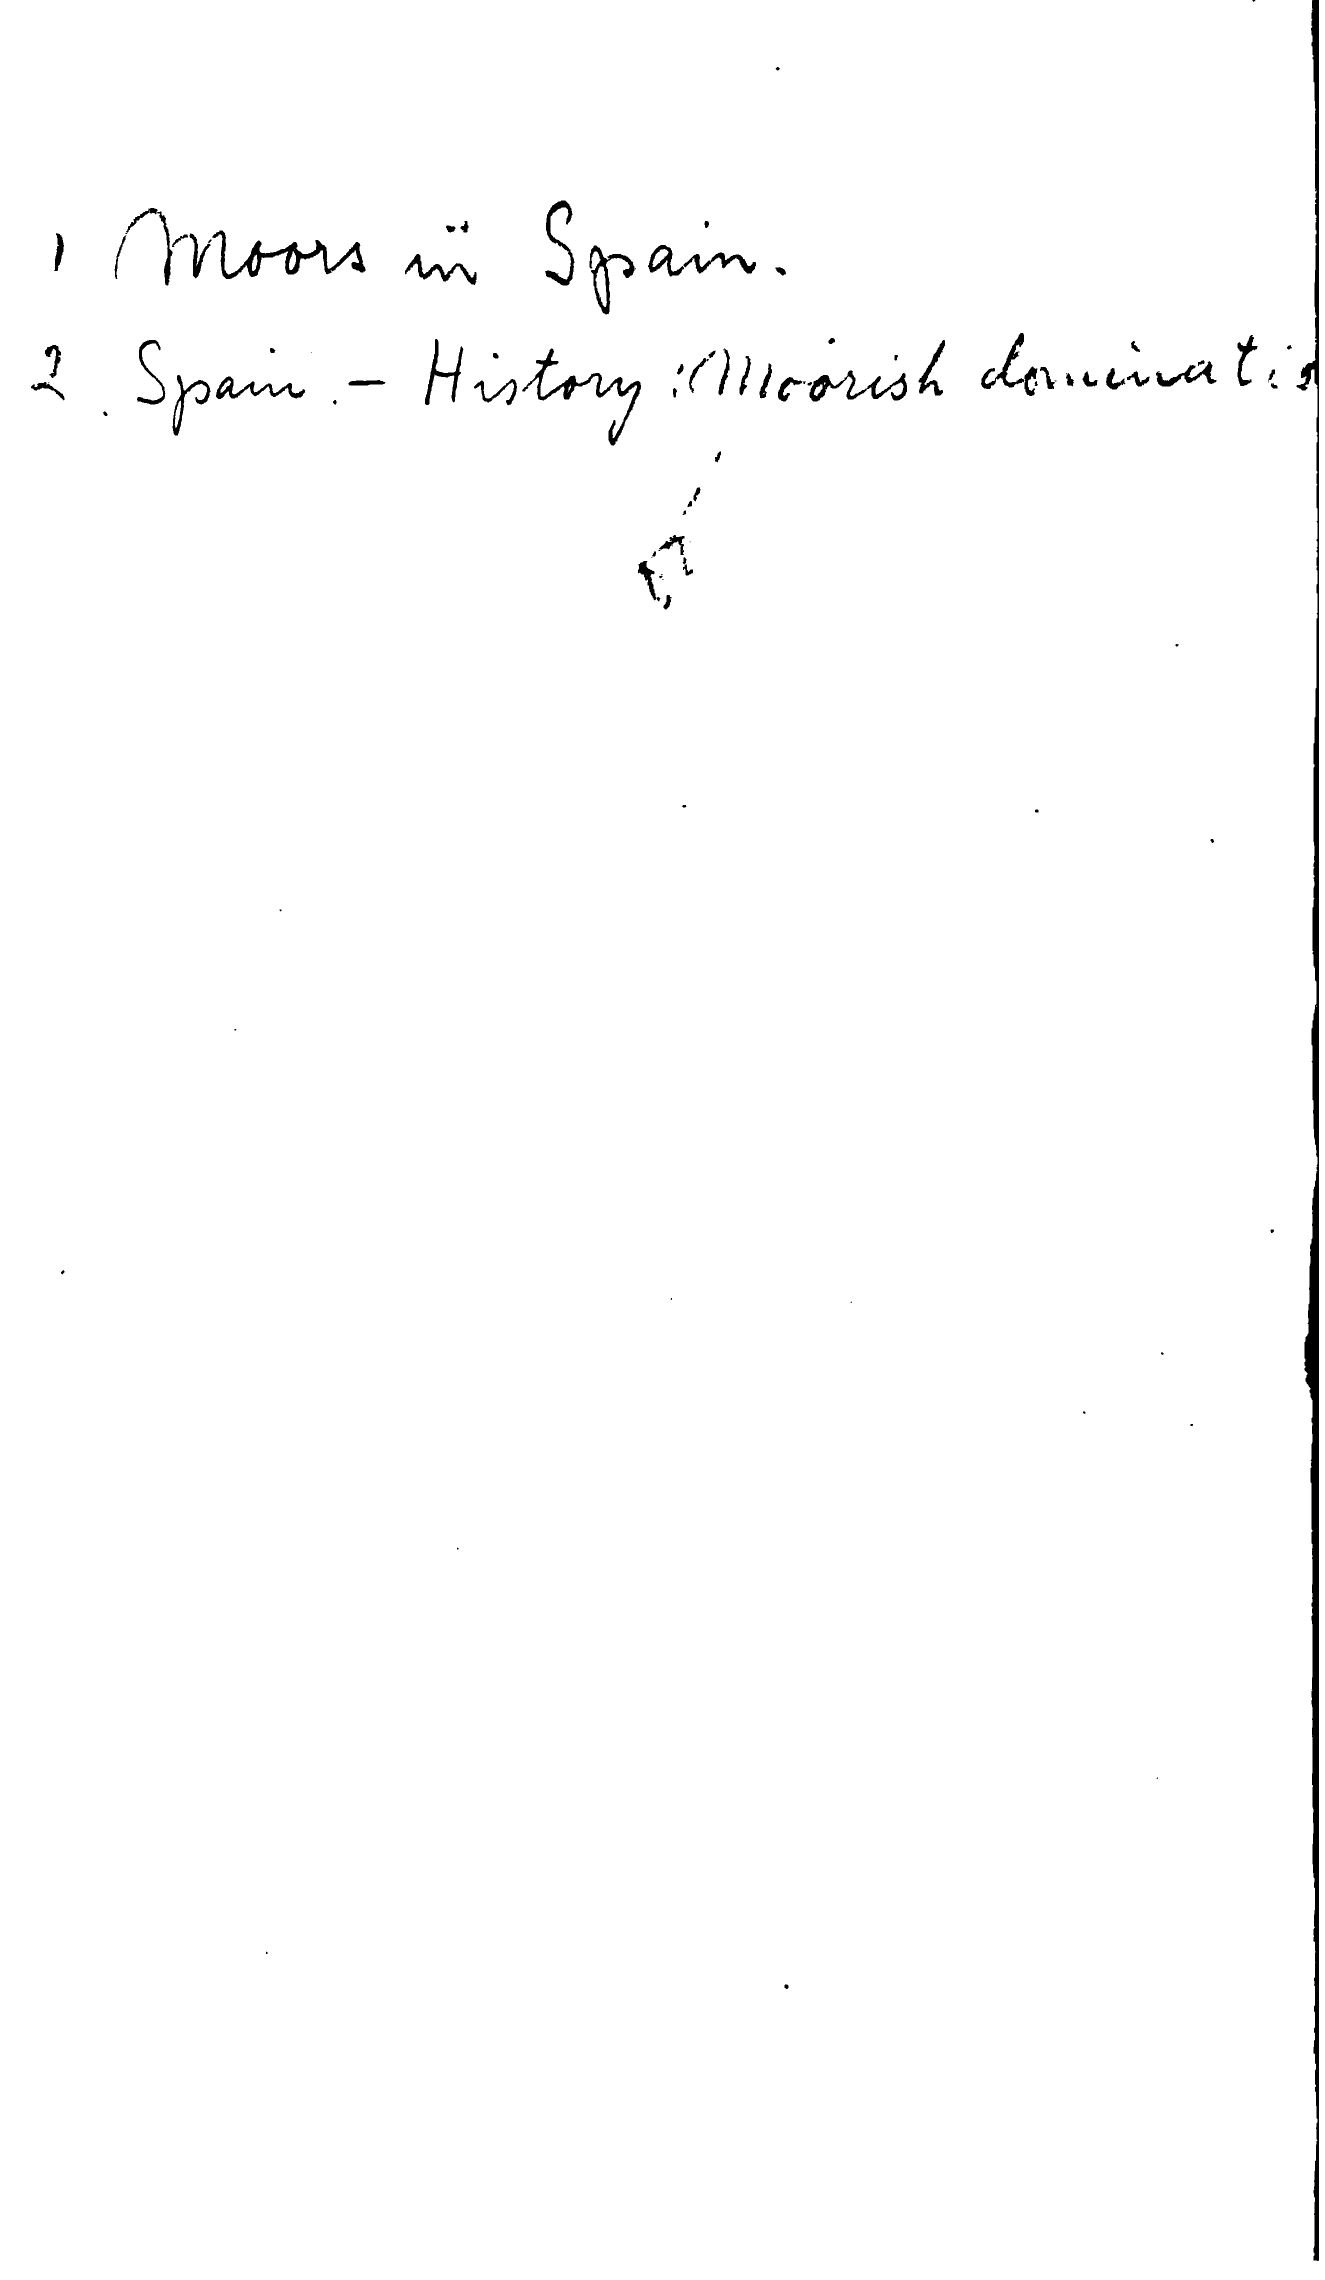 1 Moors in Spain.
2. Spain. - History: Moorish dominatio